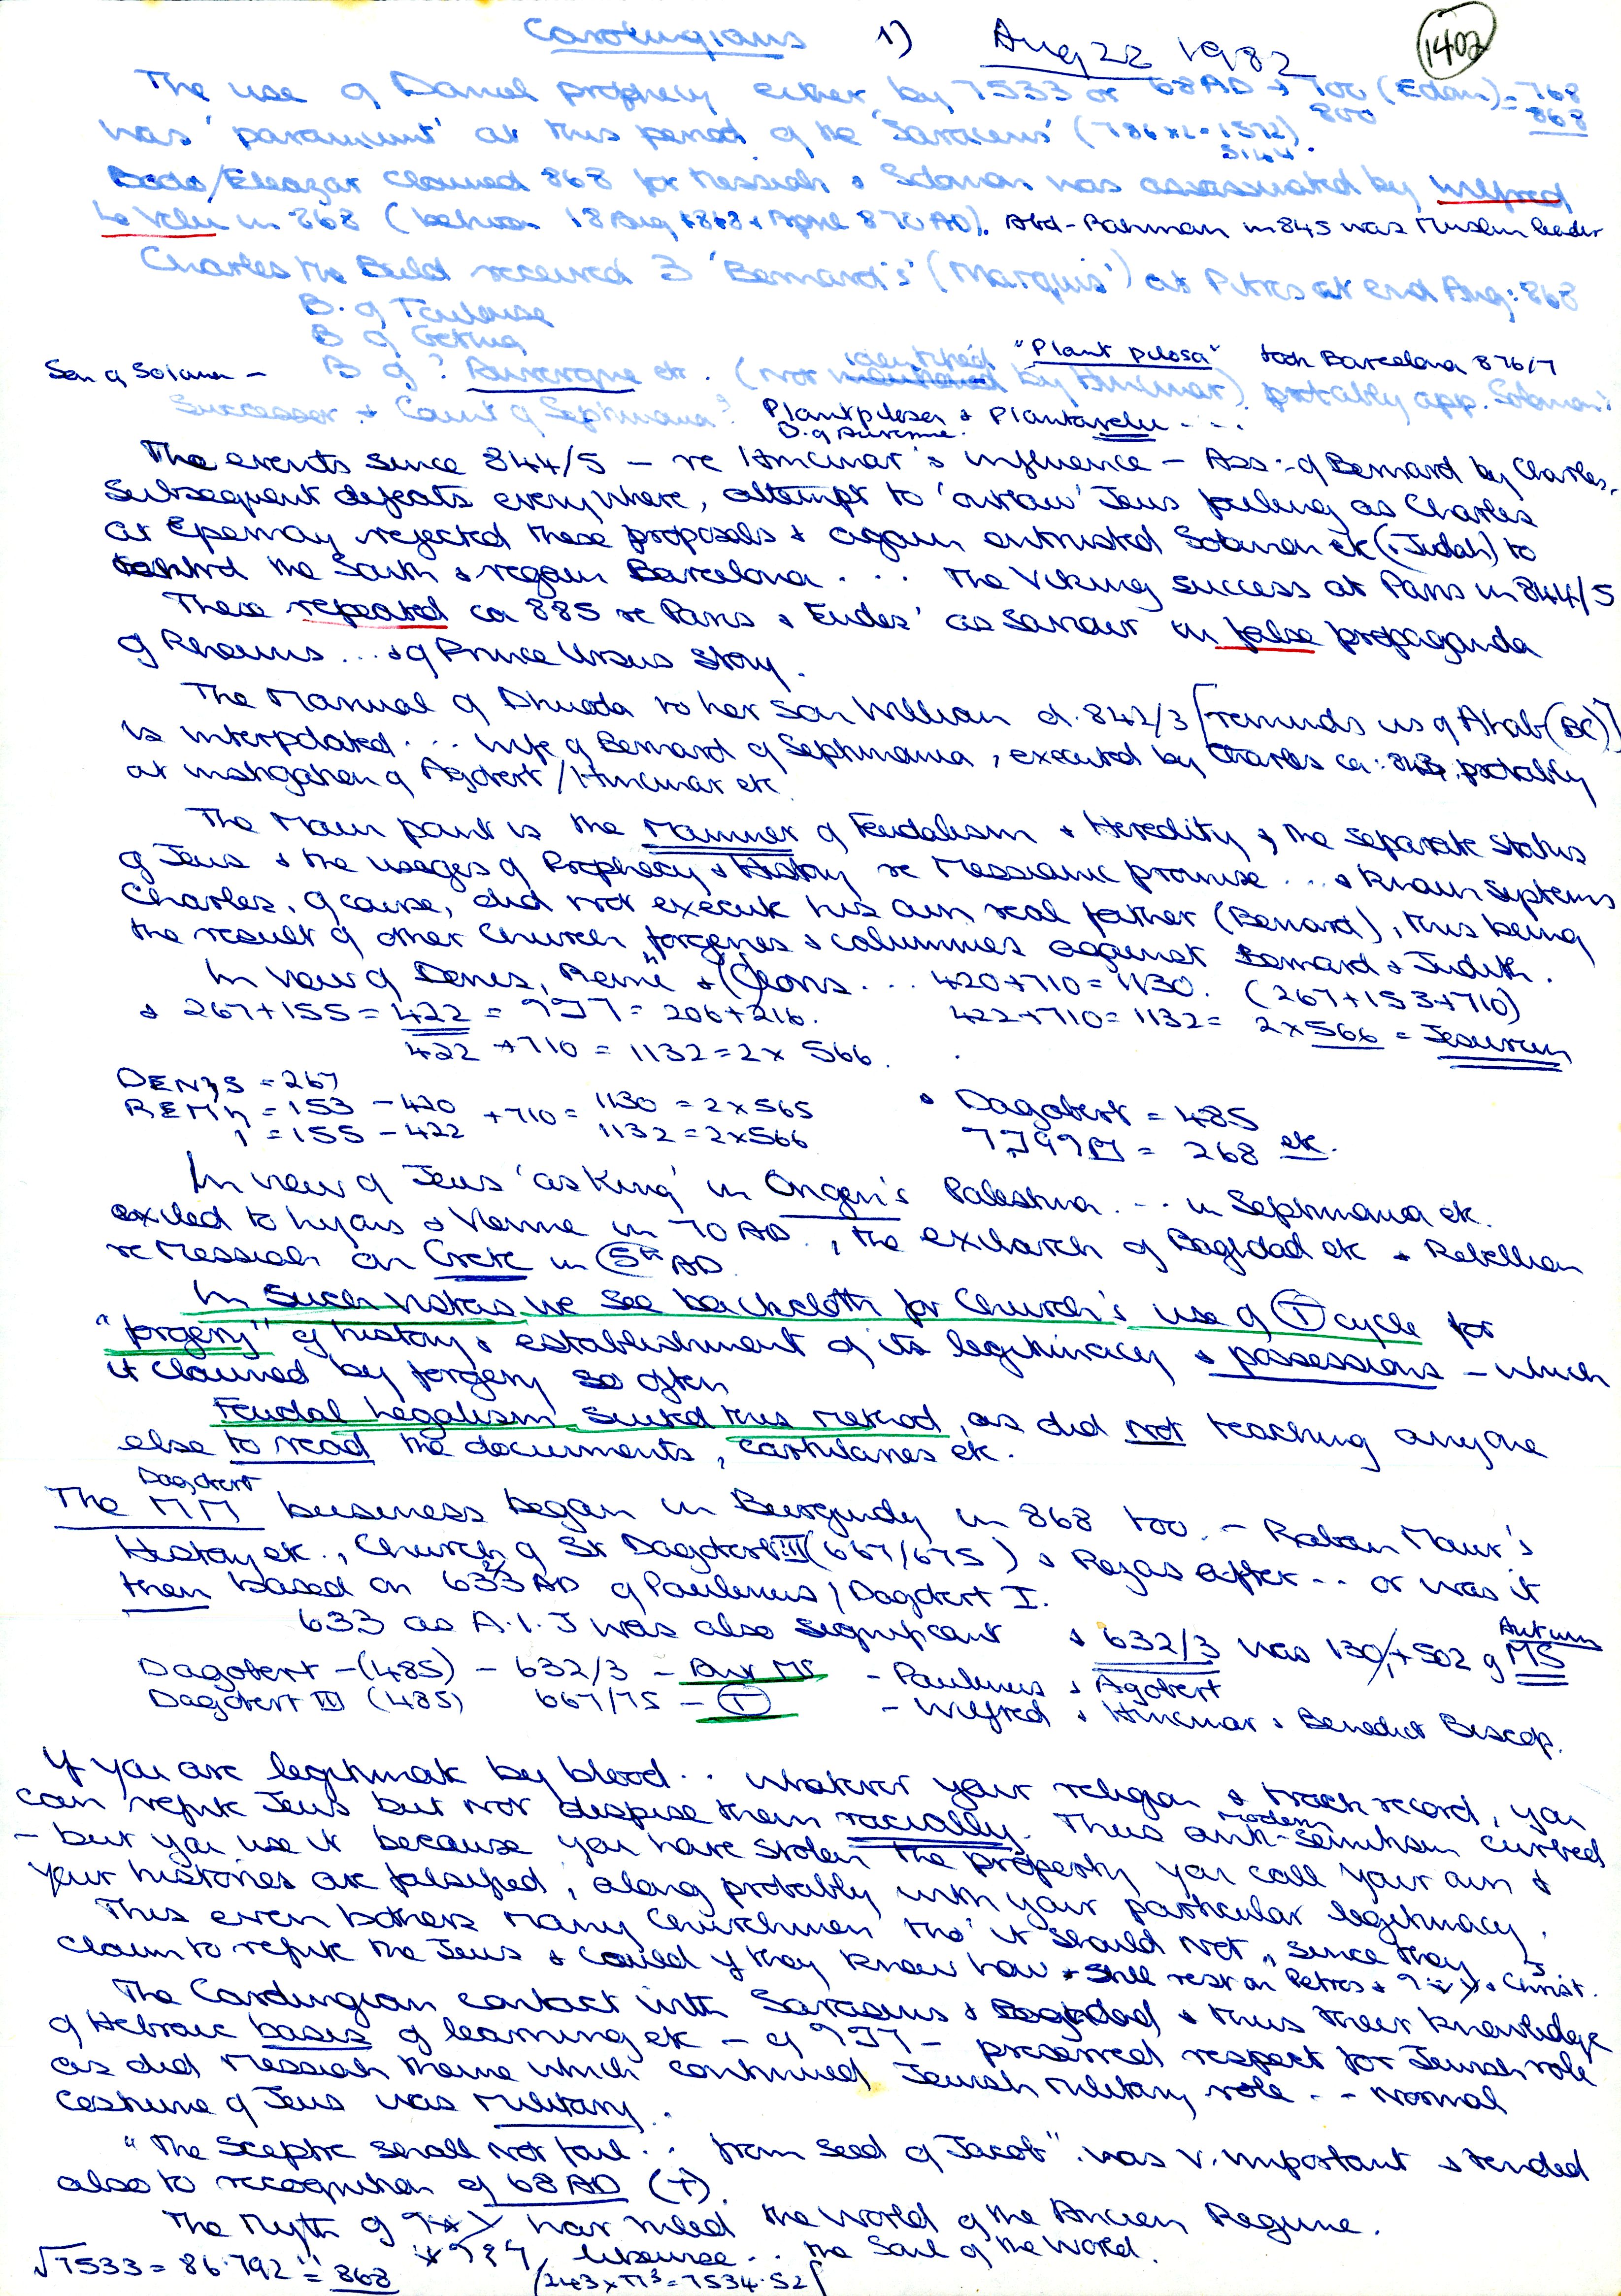 Carolingians 1) Aug 22 1982 1402
The use of Daniel prophecy either by 7533 or 68AD + 700 (Edom) = 768
800 868
was 'paramount' at this period of the 'Saracens' (786 x 2 = 1572).
Bodo/Eleazar claimed 868 for Messiah & Solomon was assassinated by Wilfred
le Velu in 868 (between 18 Aug 868 & April 870 AD). Abd-Rahman in 845 was Muslim leader
Charles the Bald received 3 'Bernard's' (Marquis') at Pitres at end Aug: 868
B. of Toulouse
B of Gothia
Son of Solomon - B of ? Auvergne etc. (not identified by Hincmar) probably app. Solomon's
"Plant pilosa" took Barcelona 876/7
Successor & Count of Septimania? Plantpilosa & Plantavelu ....
B. of Auvergne.
The events since 844/5 - re Hincmar's influence - Ass: of Bernard by Charles,
subsequent defeats everywhere, attempt to 'outlaw' Jews failing as Charles
at Epernay rejected these proposals & again entrusted Solomon etc (Judah) to
control the South & regain Barcelona ... The Viking success at Paris in 844/5
These repeated ca 885 re Paris & Eudes' as Saviour in false propaganda
of Rheims ... & of Prince Ursus story.
The Manual of Dhuoda to her son William d. 842/3 [reminds us of Ahab (BC)]
is interpolated ... wife of Bernard of Septimania, executed by Charles ca: probably
at instigation of Agobert/Hincmar etc
The main point is the manner of Feudalism & Heredity, & the separate status
of Jews & the usages of Prophecy & History re Messianic promise ... & known systems
Charles, of course, did not execute his own real father (Bernard), this being
the result of other Church forgeries & calumnies against Bernard & Judith.
In view of Denis, Remi & ... 420+710 = 1130. (267+153+710)
& 267+155 = 422 = = 206+216. 422+710 = 1132 = 2x566 = Jesurun
422 +710 = 1132 = 2x 566.
DENIS = 267
REMI = 153 - 420 +710 = 1130 = 2x565 & Dagobert = 485
= 155 - 422 1132 = 2x566 = 268 etc.
In view of Jews 'as King' in Origen's Palestine ... in Septimania etc.
exiled to Lyons & Vienne in 70 AD., the exilarch of Baghdad etc & Rebellion
re Messiah on Crete in 5th AD
In such we see backcloth for Church's use of T cycle for
"forgery" of history & establishment of its legitimacy & possessions - which
it claimed by forgery so often
Feudal Legalism suited this method, as did not teaching anyone
else to read the documents, cartularies etc.
The Dagobert MM business began in Burgundy in 868 too. - Raban Maur's
History etc., Church of St Dagobert III (667/675) & Razas after ... or was it
then based on 633 AD of Paulinus / Dagobert I.
633 as A.I.J was also significant & 632/3 was 130, + 502 of Autumn MS
Dagobert - (485) - 632/3 - Aut MS - Paulinus & Agobert
Dagobert III (485) 667/75 - T - Wilfred & Hincmar & Benedict Biscop.
If you are legitimate by blood .. whatever your religion & track record, you
can refute Jews but not despise them racially. Thus modern anti-semitism curbed
- but you use it because you have stolen the property you call your own &
your histories are falsified, along probably with your particular legitimacy.
This even bothers many Churchmen tho' it should not, since they
claim to refute the Jews & could if they knew how & still rest on Petros & Christ.
The Carolingian contact with Saracens & Baghdad & thus their knowledge
of Hebraic basis of learning etc - preserved respect for Jewish role
as did Messiah theme which continued Jewish military role .. Normal
costume of Jews was Military.
"The Sceptre shall not fail .. from seed of Jacob" was v. important & tended
also to recognition of 68 AD (T).
The Myth of has ruled the World of the Ancien Regime.
likewise .. the Soul of the World.
√7533 = 86.792 = 868 (243 x π³ = 7534.52)